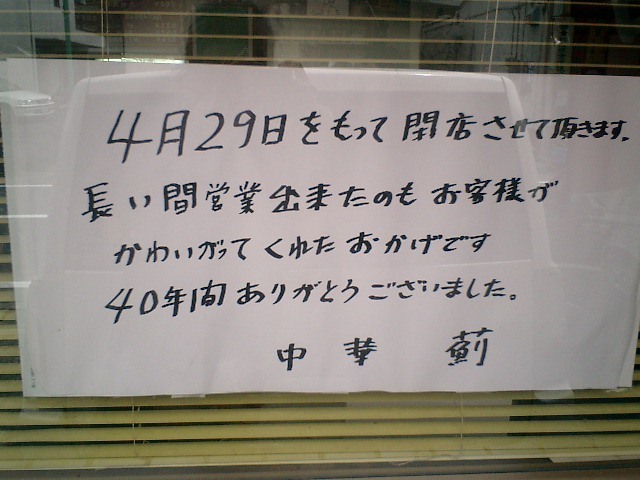 4月29日をもって閉店させて頂きます。
長い間営業出来たのもお客様が
かわいがってくれたおかげです
40年間ありがとうございました。
中華 薊